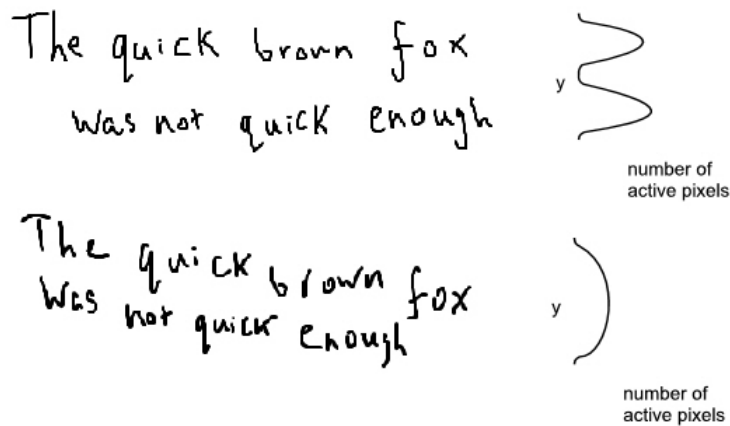 The quick brown fox
was not quick enough
y
number of
active pixels
The quick brown fox
Was not quick enough
y
number of
active pixels